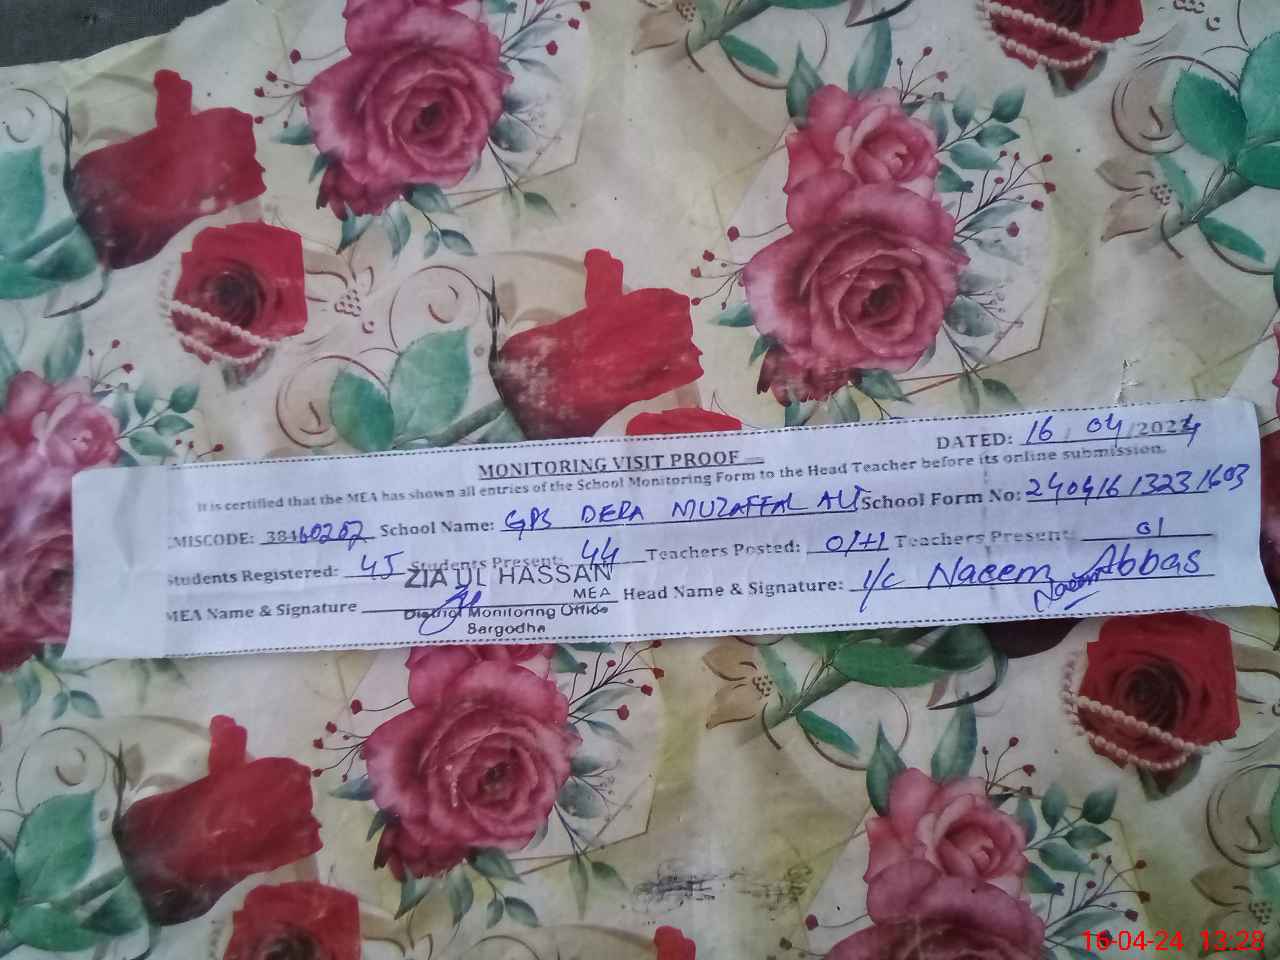 MONITORING VISIT PROOF
DATED: 16 / 04 /2024
It is certified that the MEA has shown all entries of the School Monitoring Form to the Head Teacher before its online submission.
EMISCODE: 38460202 School Name: GPS DERA MUZAFFAL ALI School Form No: 24041613231603
Students Registered: 45 Students Present: 44 Teachers Posted: 01+1 Teachers Present: 01
MEA Name & Signature ZIA UL HASSAN Head Name & Signature: I/c Naeem Abbas
MEA
District Monitoring Office
Sargodha
Naeem
16-04-24 13:28